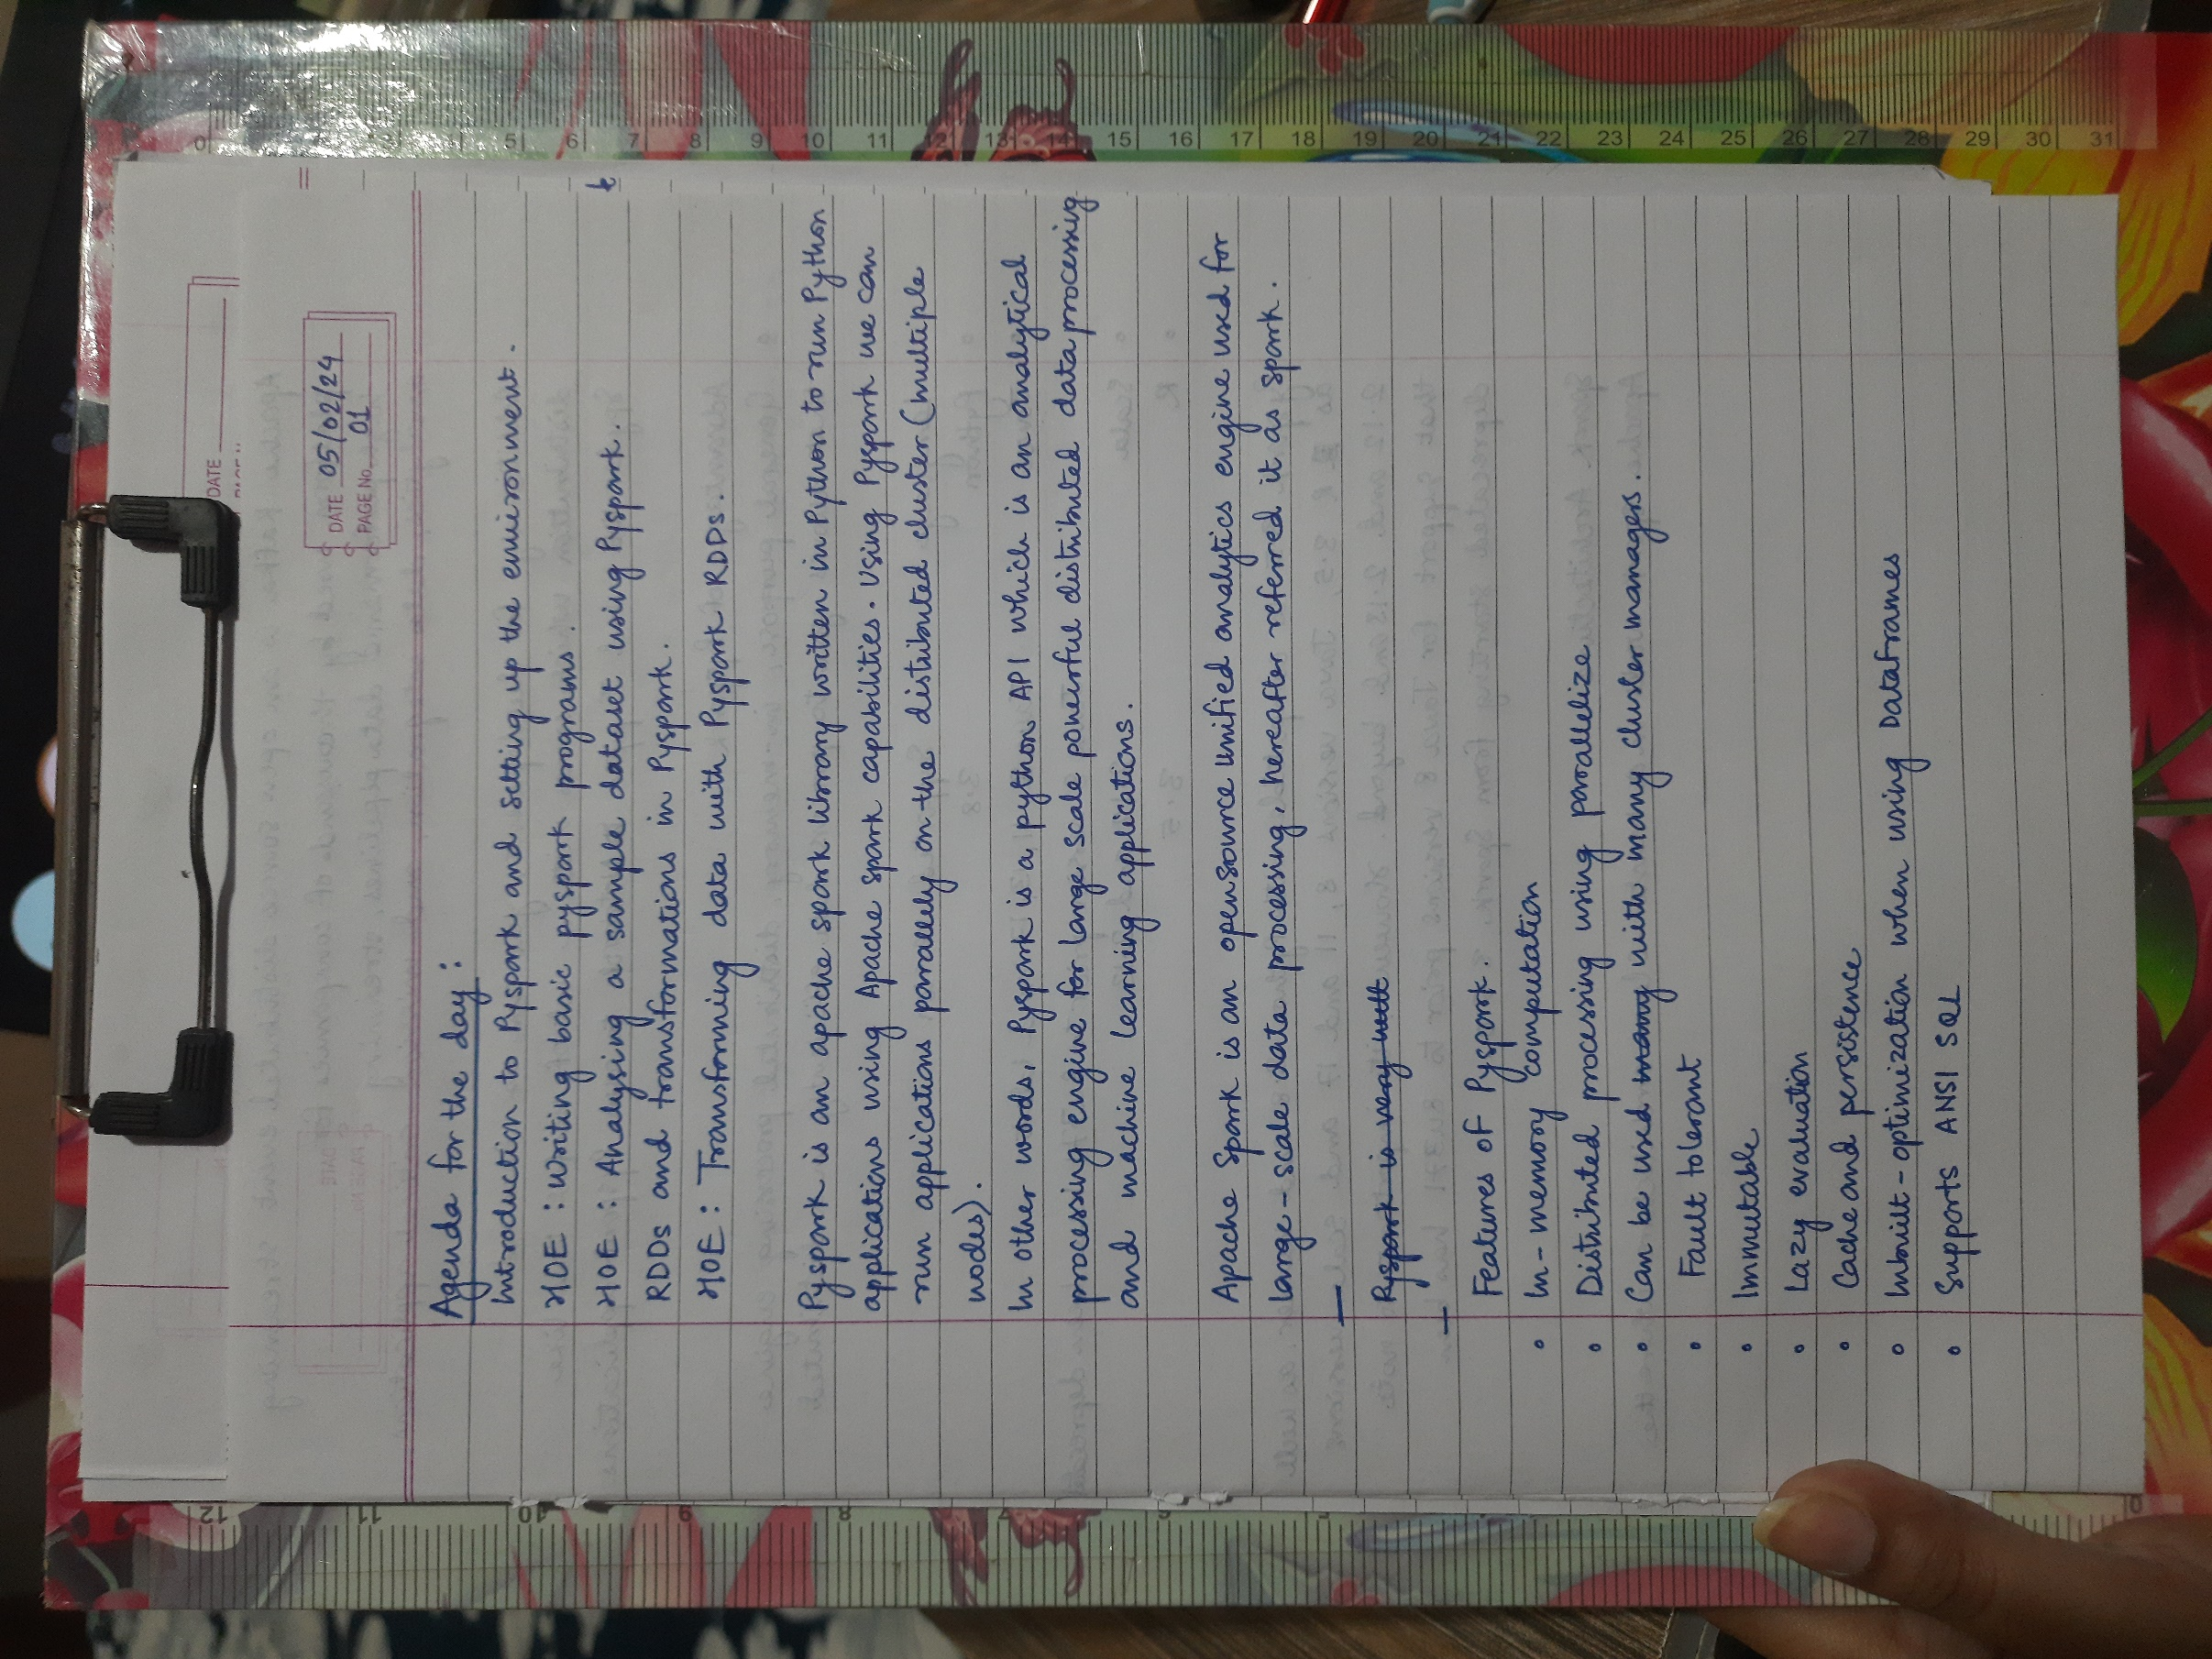 DATE
DATE 05/02/24
PAGE No. 01
Agenda for the day :
Introduction to Pyspark and setting up the environment.
HOE : Writing basic pyspark programs.
HOE : Analysing a sample dataset using Pyspark.
RDDs and transformations in Pyspark.
HOE : Transforming data with Pyspark RDDs.
Pyspark is an apache spark library written in Python to run Python
applications using Apache spark capabilities. Using Pyspark we can
run applications parallely on the distributed cluster (multiple
nodes).
In other words, Pyspark is a python API which is an analytical
processing engine for large scale powerful distributed data processing
and machine learning applications.
Apache Spark is an opensource unified analytics engine used for
large-scale data processing, hereafter referred it as spark.
Pyspark is very well
Features of Pyspark.
• In-memory computation
• Distributed processing using parallelize
• Can be used many with many cluster managers.
• Fault tolerant
• Immutable
• Lazy evaluation
• Cache and persistence
• Inbuilt-optimization when using DataFrames
• Supports ANSI SQL
0 5 6 7 8 9 10 11 12 13 14 15 16 17 18 19 20 21 22 23 24 25 26 27 28 29 30 31
12 11 10 9 8 7